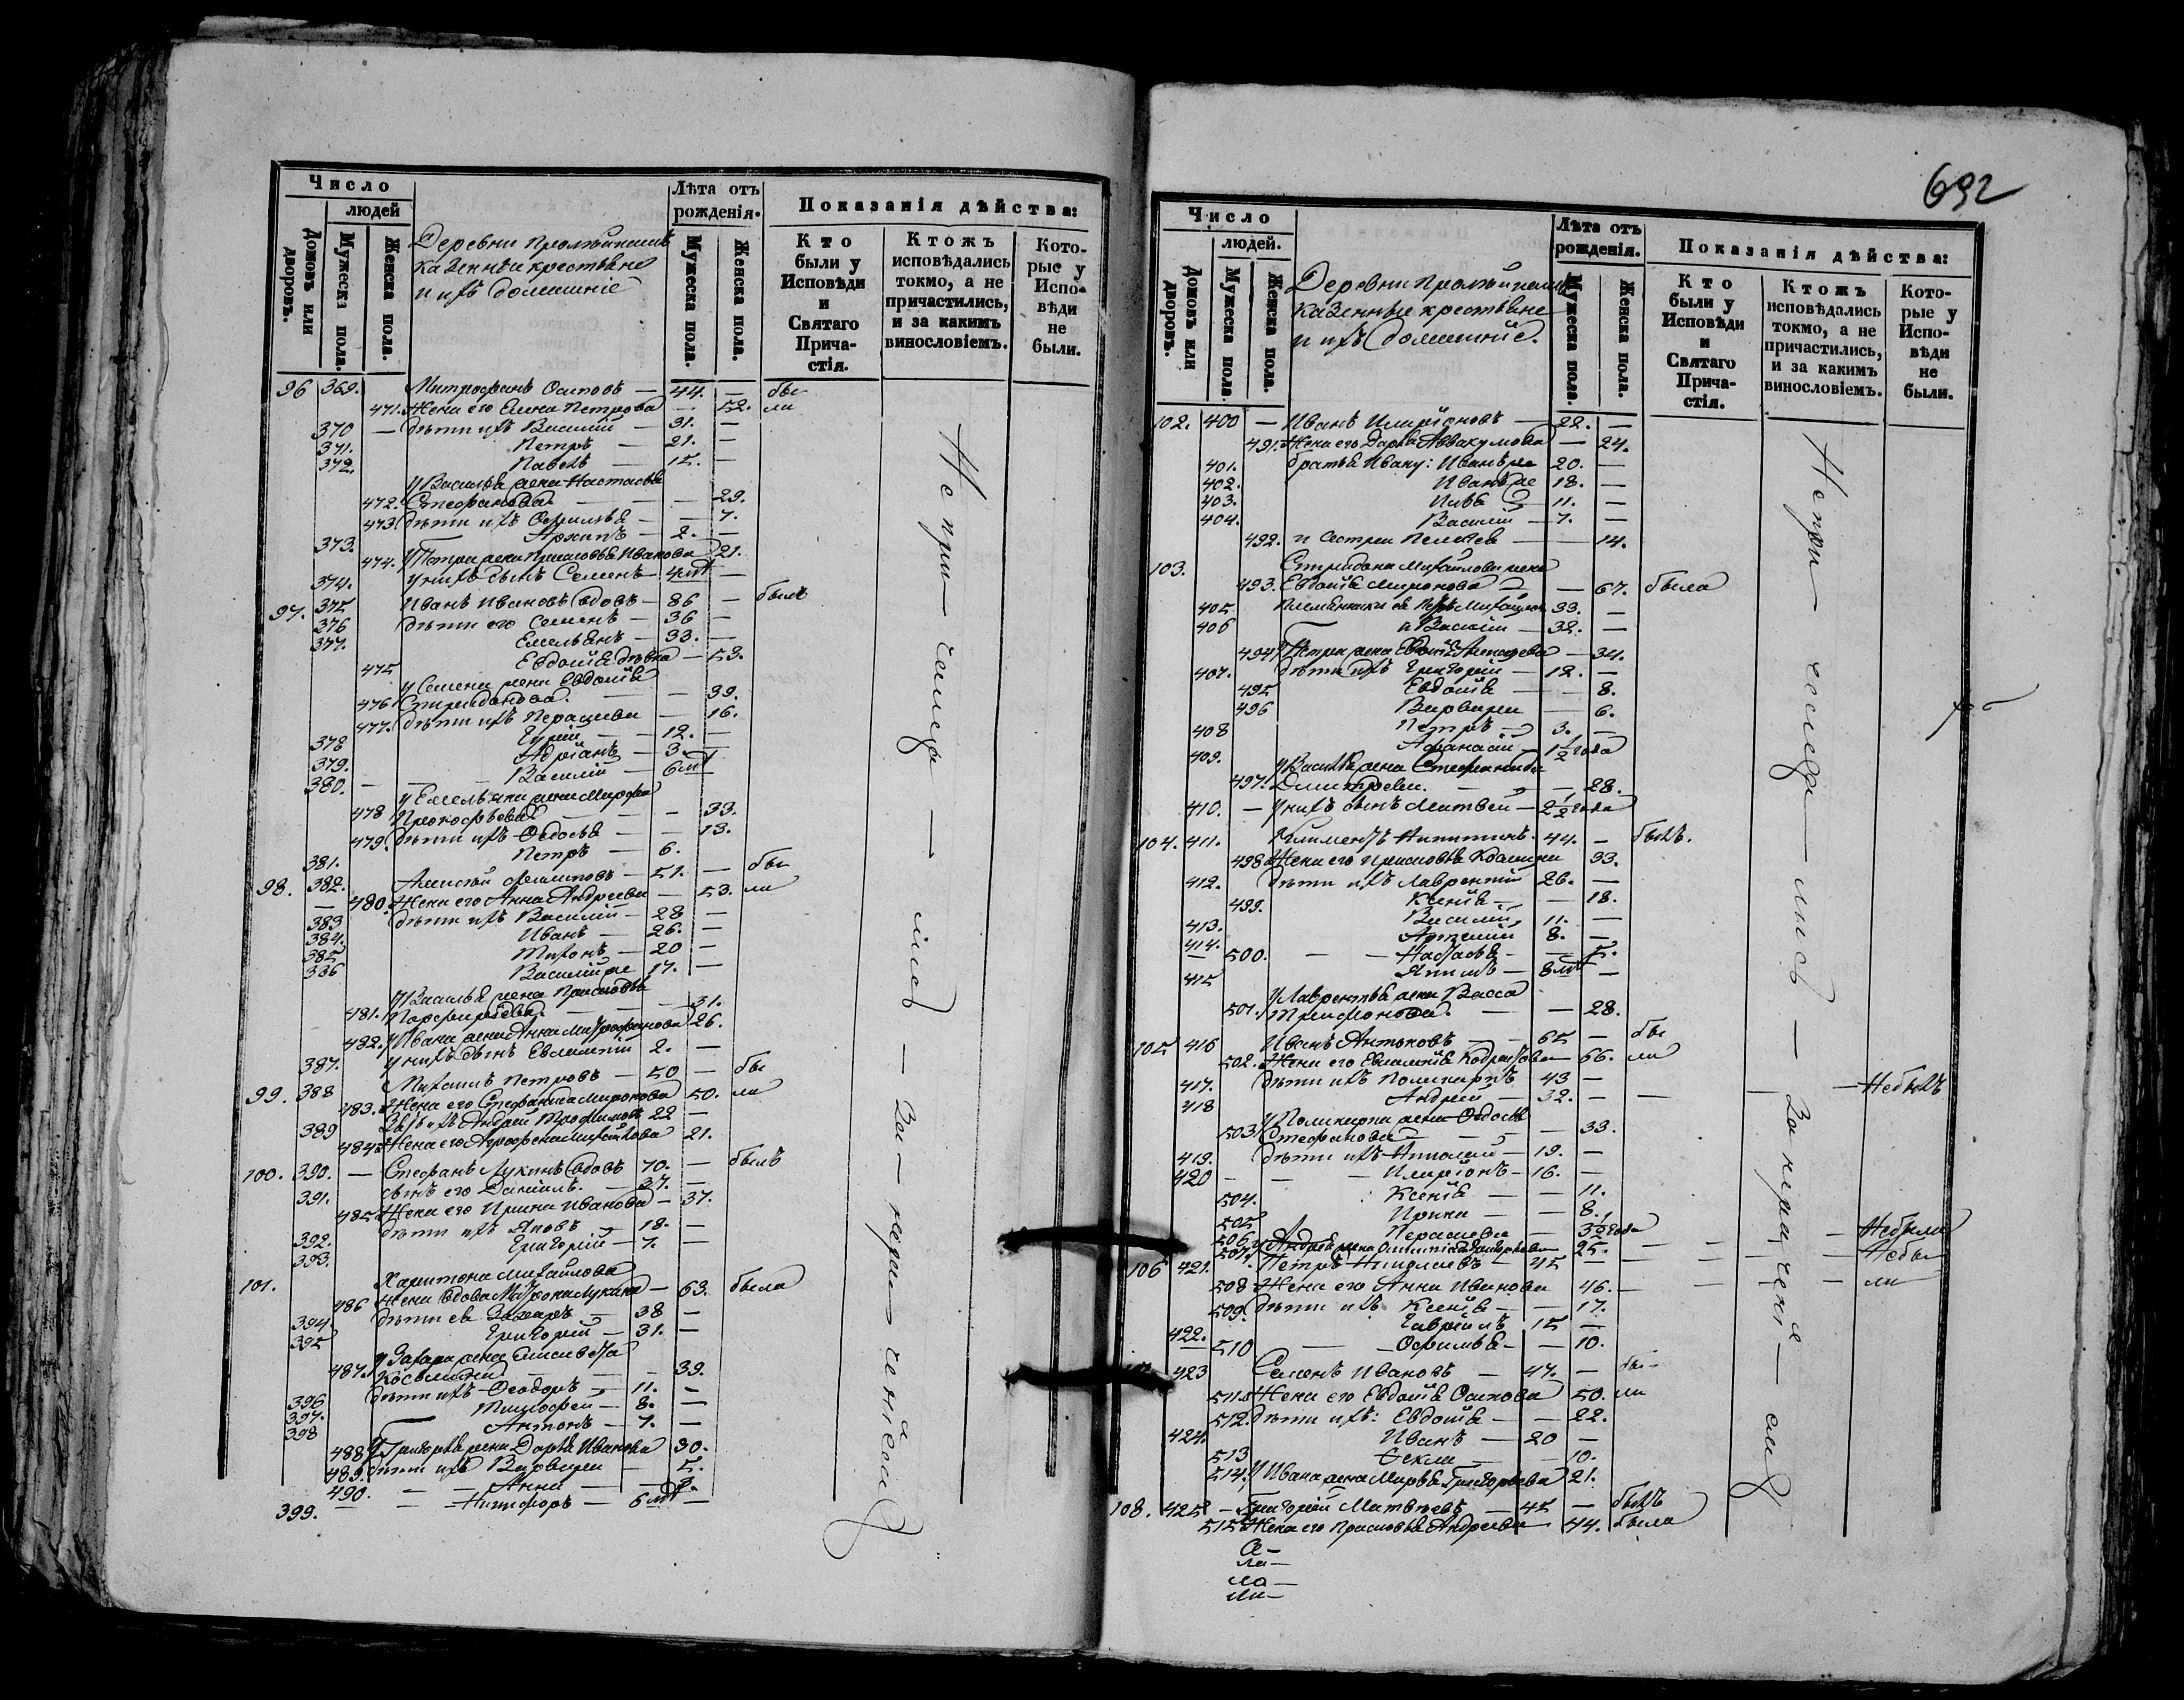 692
Число
людей
Домовъ или дворовъ.
Мужеска пола.
Женска пола.
Деревни
казенныи крестьяне
и ихъ домашніе
Лѣта отъ рожденія.
Мужеска пола.
Женска пола.
Показанія дѣйства:
Кто были у Исповѣди и Святаго Причастія.
Ктожъ исповѣдались токмо, а не причастились, и за какимъ винословіемъ.
Которые у Исповѣди не были.
96 369. Митрофанъ Осиповъ — 44. — бы
471. Жена его Елена Петрова — 52. ли
370 — дѣти ихъ Василій — 31. —
371. Петръ — 21. —
372. Павелъ — 15. —
у Василья жена Настасья
472. Стефанова — — 29.
473. дѣти ихъ Офимья — — 7.
373. Архипъ — 2. —
474. у Петра жена Прасковья Иванова 21.
374. у нихъ сынъ Семенъ — —
97. 375 Иванъ Ивановъ вдовъ — 86 — былъ
376 дѣти его Семенъ — 36 —
377. Емельянъ — 33. —
475 Евдокія дѣвка — 53.
у Семена жена Евдокія
476 Спиридонова. — 39.
477. дѣти ихъ Парасцева — 16.
378 Гурій — 12. —
379. Адріанъ — 3. —
380. — Василій —
у Емельяна жена Марфа
478 Прокофьева — 33.
479. дѣти ихъ Ѳедосья — 13.
381. Петръ — 6.
98. 382. Алексѣй — 51. — бы
480. Жена его Анна Андреева — 53. ли
383 дѣти ихъ Василій — 28 —
384. Иванъ — 26. —
385 Тихонъ — 20 —
386 Василій же 17. —
у Василья жена Прасковья
481. Парфирьева. — 31.
482. у Ивана жена Анна Митрофанова 26.
387. у нихъ сынъ Евлампій 2. —
99. 388 Михаилъ Петровъ — 50 — бы
483. Жена его Стефанида Миронова 50. ли
389 Зять ихъ Андрей Трофимовъ 22 —
484. Жена его Агрофена Михайлова 21.
100. 390. — Стефанъ Лукинъ вдовъ 70. — былъ
391. сынъ его Даніилъ. — 37. —
485 Жена его Ирина Иванова — 37.
392. дѣти ихъ Яковъ — 18. —
393. Григорій — 7. —
101. Харитона Михайлова
486 Жена вдова Матрона Лукина — 63. была
394. дѣти ея Захаръ — 38 —
395 Григорій — 31. —
у Захара жена Елисавета
487. — 39.
396 дѣти ихъ Ѳеодоръ — 11. —
397. Тимофей — 8. —
398 Антонъ — 7. —
488 у Григорья жена Дарья Иванова 30.
489. дѣти ихъ Варвара — 5.
490. — — Анна —
399. — Никифоръ —
Не при— — лись — За —
Число
людей.
Домовъ или дворовъ.
Мужеска пола
Женска пола.
Деревни
казенные крестьяне
и ихъ домашніе.
Лѣта отъ рожденія.
Мужеска пола.
Женска пола.
Показанія дѣйства:
Кто были у Исповѣди и Святаго Причастія.
Ктожъ исповѣдались токмо, а не причастились, и за какимъ винословіемъ.
Которые у Исповѣди не были.
102. 400 — Иванъ Иларіоновъ — 22. —
491. Жена его Дарья Аввакумова — 24.
401. братья Ивану: Иванъ же 20. —
402. Иванъ же 18. —
403. Илья — 11. —
404. Василій — 7. —
492. и сестра Пелагея — — 14.
103. Спиридона Михайлова жена
493. Евдокія Миронова — 67. была
405. Племянники ея 33. —
406 и Василій — 32. —
494. у Петра жена Евдокія — 34.
407. дѣти ихъ Григорій — 12. —
495 Евдокія — 8.
496 Варвара — 6.
408 Петръ — 3. —
409. Афанасій — 1½ года
у Василья жена Стефанида
497. Дмитрева. — 28.
410. — у нихъ сынъ Матвей — 2½ года
104. 411. Климентъ Никитинъ. 44. — былъ.
498. Жена его Прасковья 33.
412. дѣти ихъ Лаврентій 26. —
499. Ксенія — — 18.
413. Василій 11. —
414. Артемій 8. —
500. — — Настасья — — 5.
415 Якимъ — —
у Лаврентья жена Васса
501. Трифонова. — — 28.
105 416 Иванъ Антоновъ — 65 — бы
502. Жена его Евлампія — 66. ли
417. дѣти ихъ Поликарпъ 43 —
418 Андрей — 32. — — — Небылъ
у Поликарпа жена Ѳедосья
503. Стефанова — 33.
419. дѣти ихъ Николай — 19. —
420 — — Иларіонъ — 16. —
504. Ксенія — — 11.
505 Ирина — — 8.
506. Парасцева — 3½ года — Небыла
507. у Андрея жена Григорьева 25. — — Небы
106 421. Петръ Николаевъ — 45 — — — ли
508 Жена его Анна Иванова 46. —
509. дѣти ихъ Ксенія — 17.
422. Гавріилъ 15 —
510 — — Офимья — — 10.
423 Семенъ Ивановъ — 47. — бы
511. Жена его Евдокія Осипова 50. ли
512. дѣти ихъ: Евдокія — 22.
424. Иванъ — 20 —
513 Ѳекла — 10.
514. у Ивана жена Марья Григорьева 21.
108. 425 — Григорій Матвѣевъ — 45 — былъ
515 Жена его Прасковья Андреева — 44. была
Непри — — лись — За